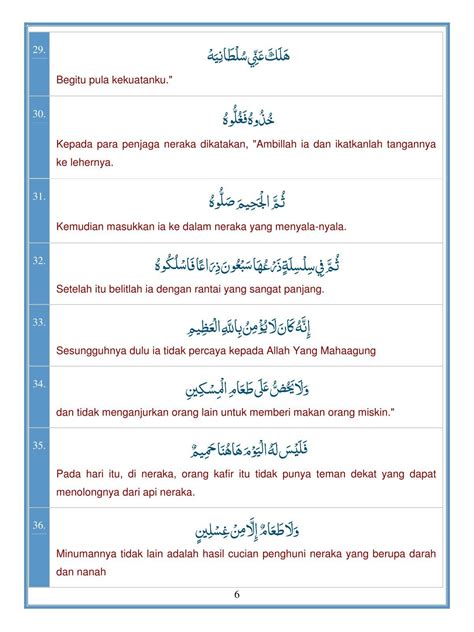 29.
هَلَكَ عَنِّي سُلْطَانِيَهْ
Begitu pula kekuatanku."
30.
خُذُوهُ فَغُلُّوهُ
Kepada para penjaga neraka dikatakan, "Ambillah ia dan ikatkanlah tangannya
ke lehernya.
31.
ثُمَّ الْجَحِيمَ صَلُّوهُ
Kemudian masukkan ia ke dalam neraka yang menyala-nyala.
32.
ثُمَّ فِي سِلْسِلَةٍ ذَرْعُهَا سَبْعُونَ ذِرَاعًا فَاسْلُكُوهُ
Setelah itu belitlah ia dengan rantai yang sangat panjang.
33.
إِنَّهُ كَانَ لَا يُؤْمِنُ بِاللَّهِ الْعَظِيمِ
Sesungguhnya dulu ia tidak percaya kepada Allah Yang Mahaagung
34.
وَلَا يَحُضُّ عَلَى طَعَامِ الْمِسْكِينِ
dan tidak menganjurkan orang lain untuk memberi makan orang miskin."
35.
فَلَيْسَ لَهُ الْيَوْمَ هَاهُنَا حَمِيمٌ
Pada hari itu, di neraka, orang kafir itu tidak punya teman dekat yang dapat
menolongnya dari api neraka.
36.
وَلَا طَعَامٌ إِلَّا مِنْ غِسْلِينٍ
Minumannya tidak lain adalah hasil cucian penghuni neraka yang berupa darah
dan nanah
6